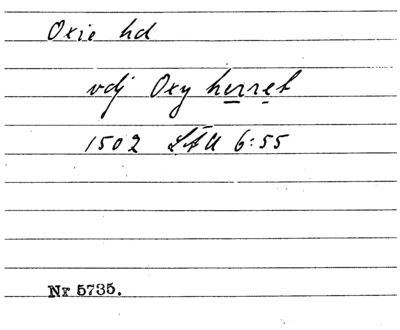 Oxie hd
vdj Oxy herret
1502 LÄU 6:55
Nr 5735.